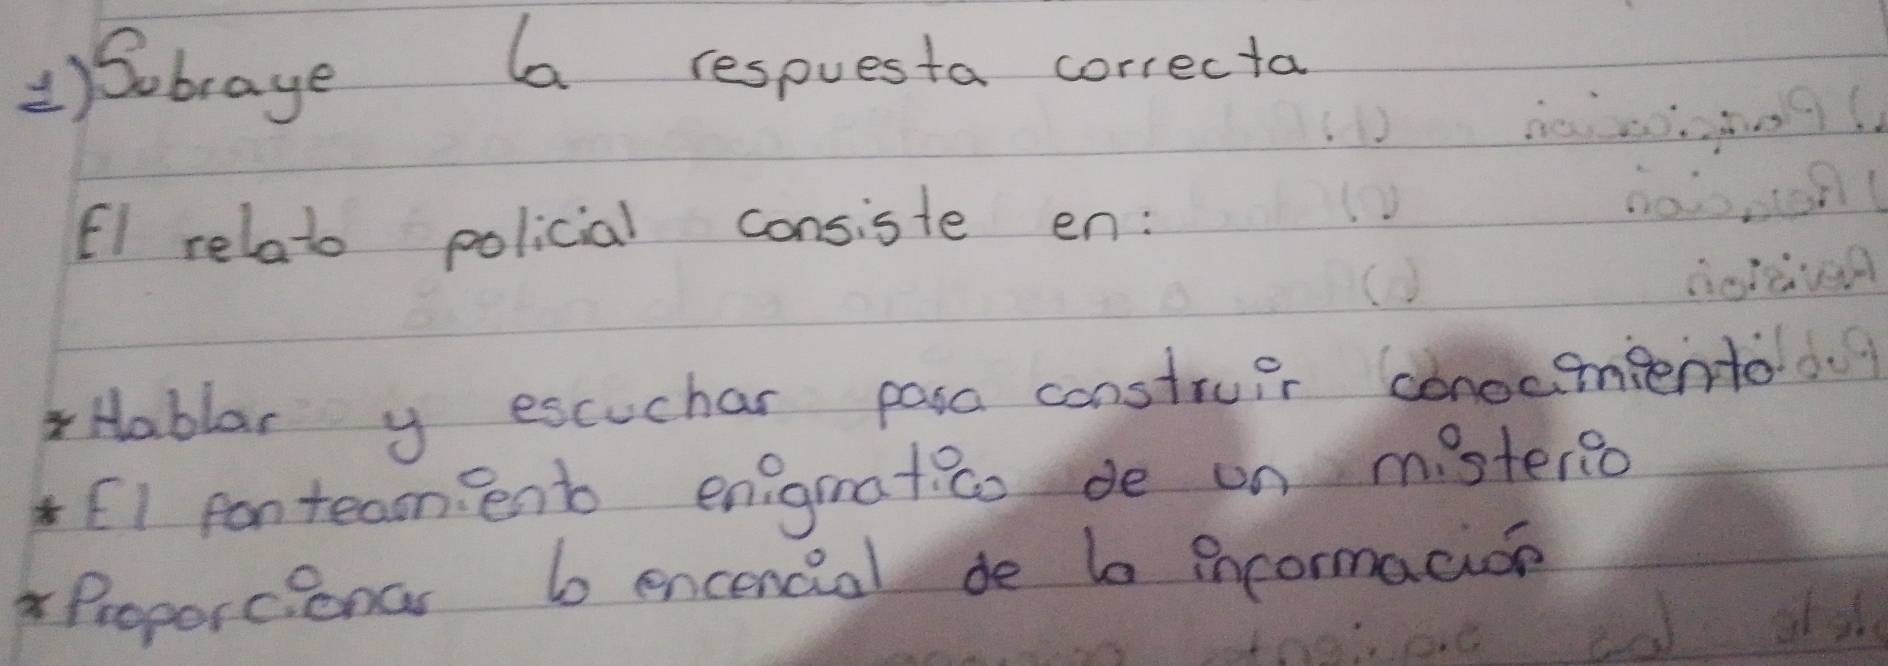 1) Subraye la respuesta correcta
El relato policial consiste en:
* Hablar y escuchar pasa construir conocimiento
* El panteamiento enigmatico de un misterio
* Proporcionar lo encencial de la información